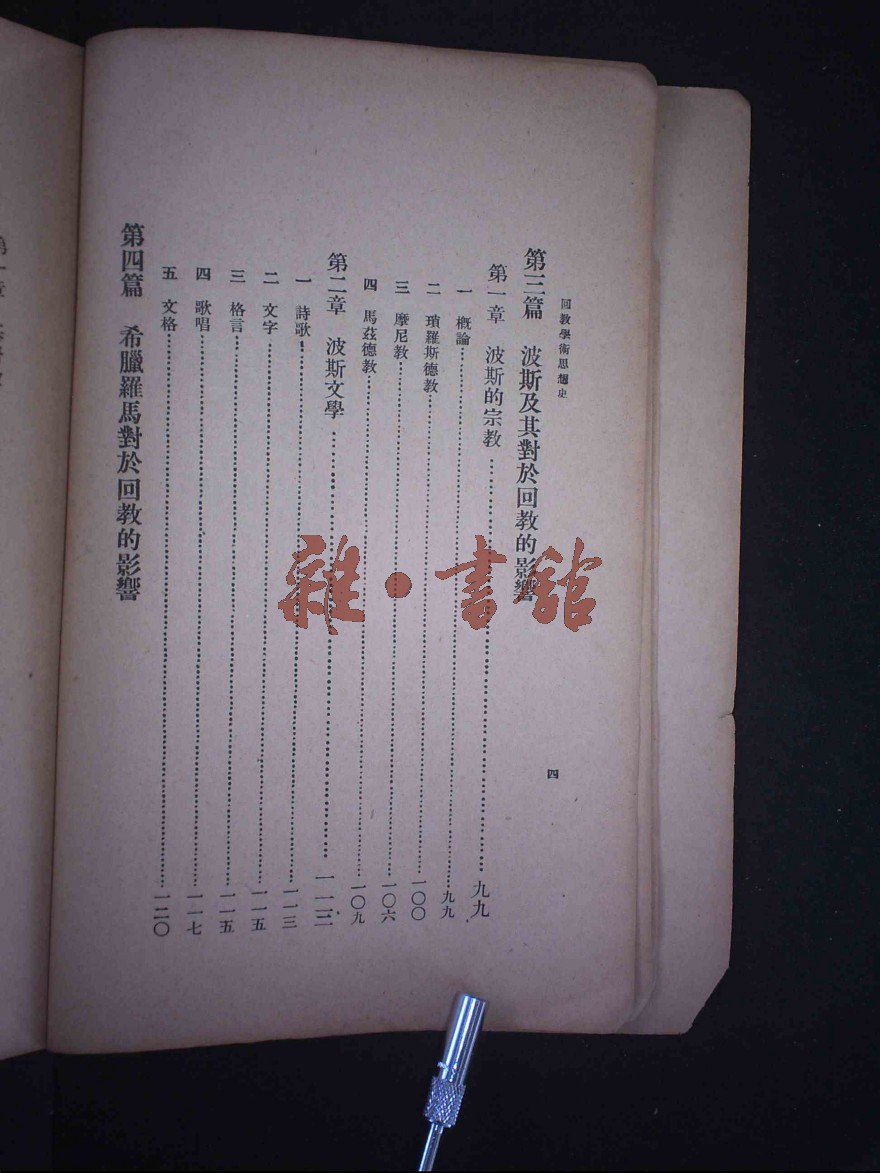 回教學術思想史
四
第三篇 波斯及其對於回教的影響
第一章 波斯的宗教……九九
一 概論……九九
二 瑣羅斯德教……一〇〇
三 摩尼教……一〇六
四 馬茲德教……一〇九
第二章 波斯文學……一一三
一 詩歌……一一三
二 文字……一一五
三 格言……一一五
四 歌唱……一一七
五 文格……一二〇
第四篇 希臘羅馬對於回教的影響
雜·書館